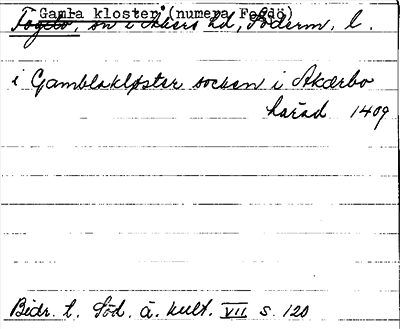 Gamla kloster (numera Fogdö)
Fogdö, sn i Åkers hd, Söderm. l.
i Gamblakloster socken i Akærbo
hærad 1409
Bidr. t. Söd. ä. kult. VII s. 120